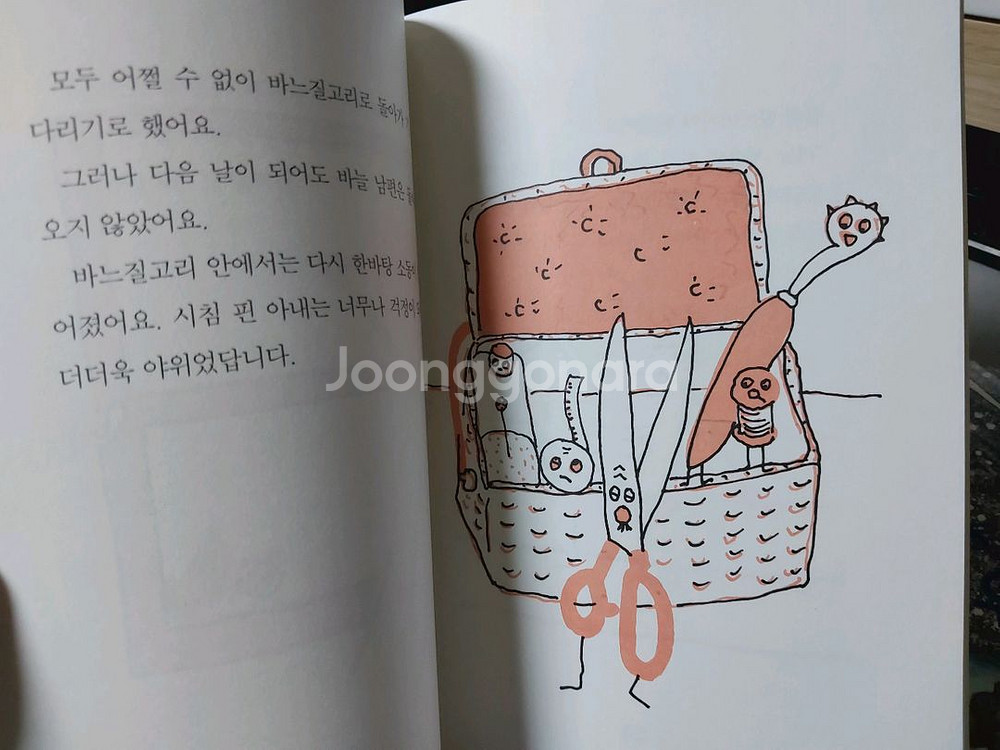 모두 어쩔 수 없이 바느질고리로 돌아가
다리기로 했어요.
그러나 다음 날이 되어도 바늘 남편은
오지 않았어요.
바느질고리 안에서는 다시 한바탕
어졌어요. 시침 핀 아내는 너무나 걱정이
더더욱 야위었답니다.
Joonggonara